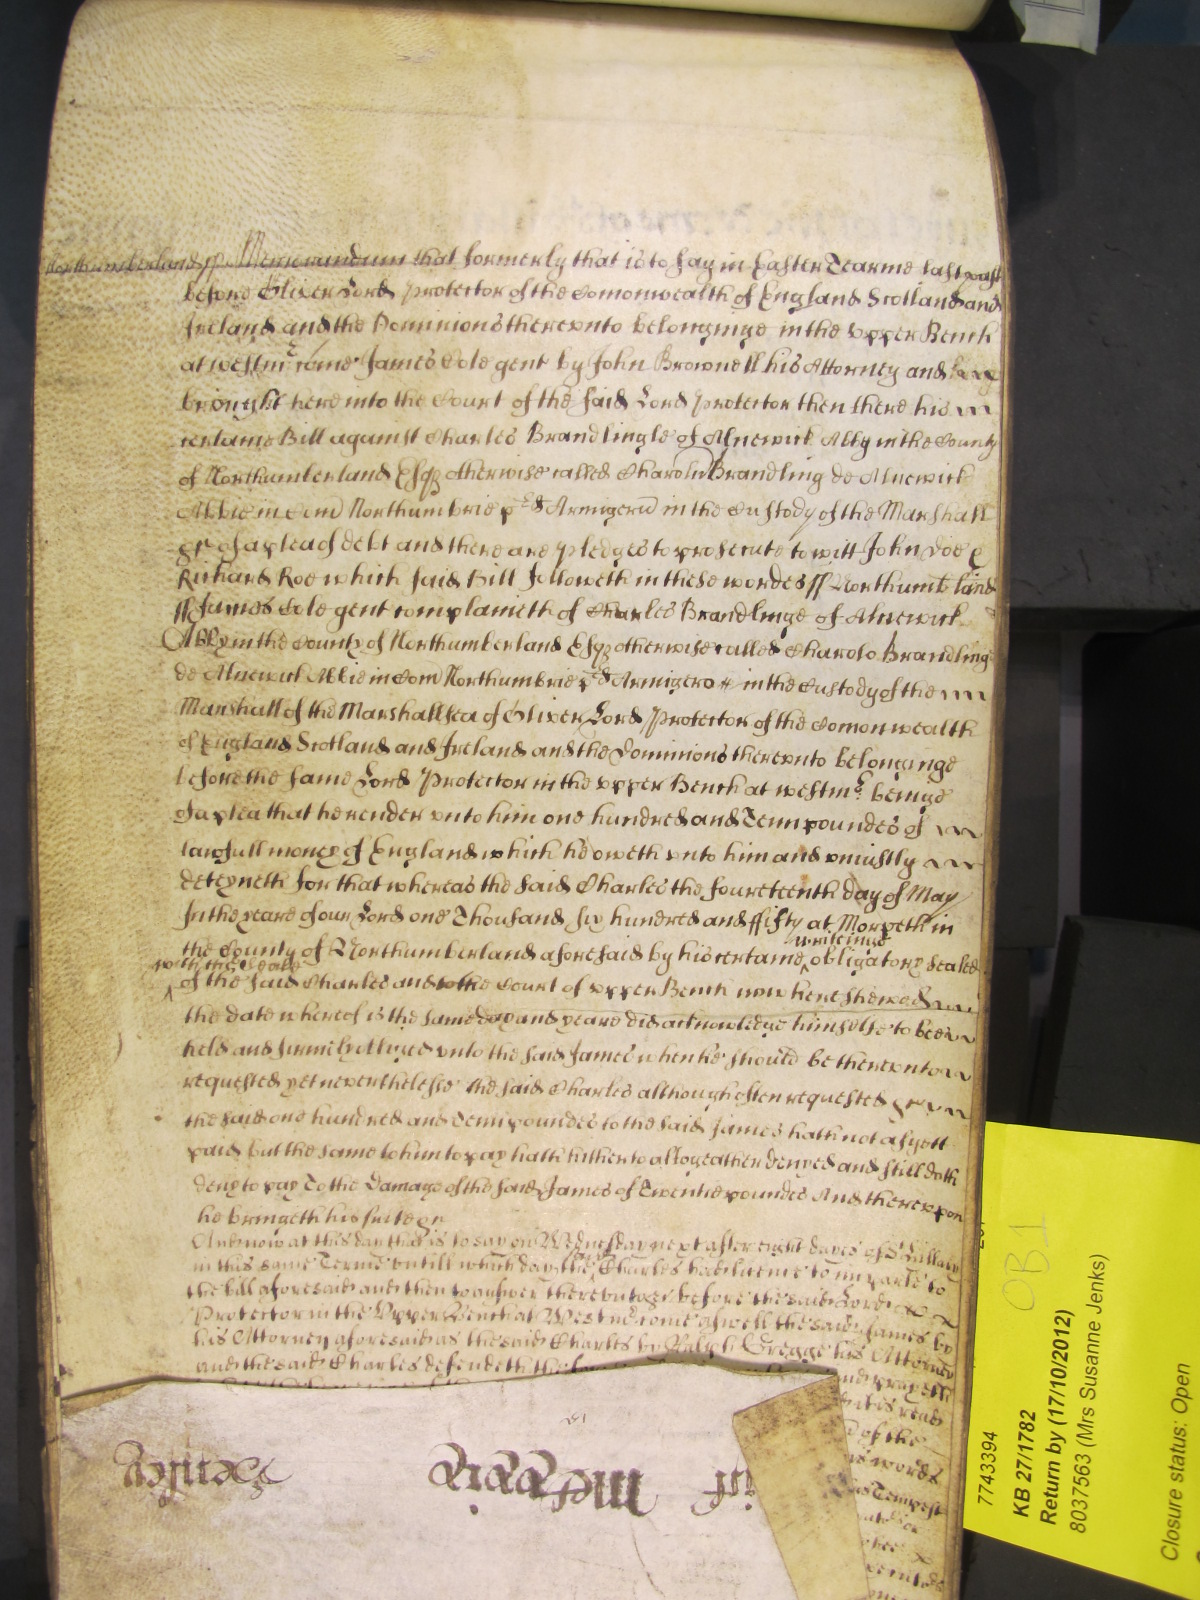 Northumberland ss Memorandum that formerly that is to say in Easter Tearme last past
before Oliver Lord Protector of the Comonwealth of England Scotland and
Ireland and the Dominions therevnto belonginge in the vpper Bench
at westmr came James Cole gent by John Brownell his Attorney and
brought here into the Court of the said Lord Protector then there his
certaine Bill against Charles Brandlingle of Alnewick Abby in the County
of Northumberland Esqr otherwise called Charolu Brandling de Alnewick
Abbie in Com Northumbrie pred Armigeru in the Custody of the Marshall
&c of a plea of debt and there are pledges to prosecute to witt John Doe &
Richard Roe which said Bill followeth in these wordes ss Northumbland
ss James Cole gent complaineth of Charles Brandlinge of Alnewick
Abby in the County of Northumberland Esqr otherwise called Charolo Brandling
de Alnewick Abbie in Com Northumbrie pred Armigero in the Custody of the
Marshall of the Marshallsea of Oliver Lord Protector of the Comonwealth
of England Scotland and Ireland and the Dominions therevnto belonginge
before the same Lord Protector in the vpper Bench at westmr beinge
of a plea that he render vnto him one hundred and Tenn poundes of
lawfull money of England which he oweth vnto him and vniustly
deteyneth for that whereas the said Charles the fourteenth day of May
In the yeare of our Lord one Thousand six hundred and ffifty at Morpeth in
writeinge
the County of Northumberland aforesaid by his certaine obligatory sealed
with the Seale
of the said Charles and to the Court of vpper Bench now here shewed
the date whereof is the same day and yeare did acknowledge himselfe to bee
held and firmely obliged vnto the said James when he should be therevnto
requested yet neverthelesse the said Charles although often requested
the said one hundred and Tenn poundes to the said James hath not as yett
paid but the same to him to pay hath hitherto altogeather denyed and still doth
deny to pay To the Damage of the said James of Twentie poundes And therevpon
he bringeth his suite &c
And now at this day that is to say on Wednesday next after eight dayes of St Hillary
in this same Terme vntill which day the Charles had licence to imparle to
the bill aforesaid and then to answer thereunto &c before the said Lord
Protector in the Vpper Bench at Westmr come aswell the said James by
his Attorney aforesaid as the said Charles by Ralph Gregge his Attorney
and the said Charles defendeth the
of the
words
Tempest
7743394
KB 27/1782
Return by (17/10/2012)
8037563 (Mrs Susanne Jenks)
Closure status: Open
OB1